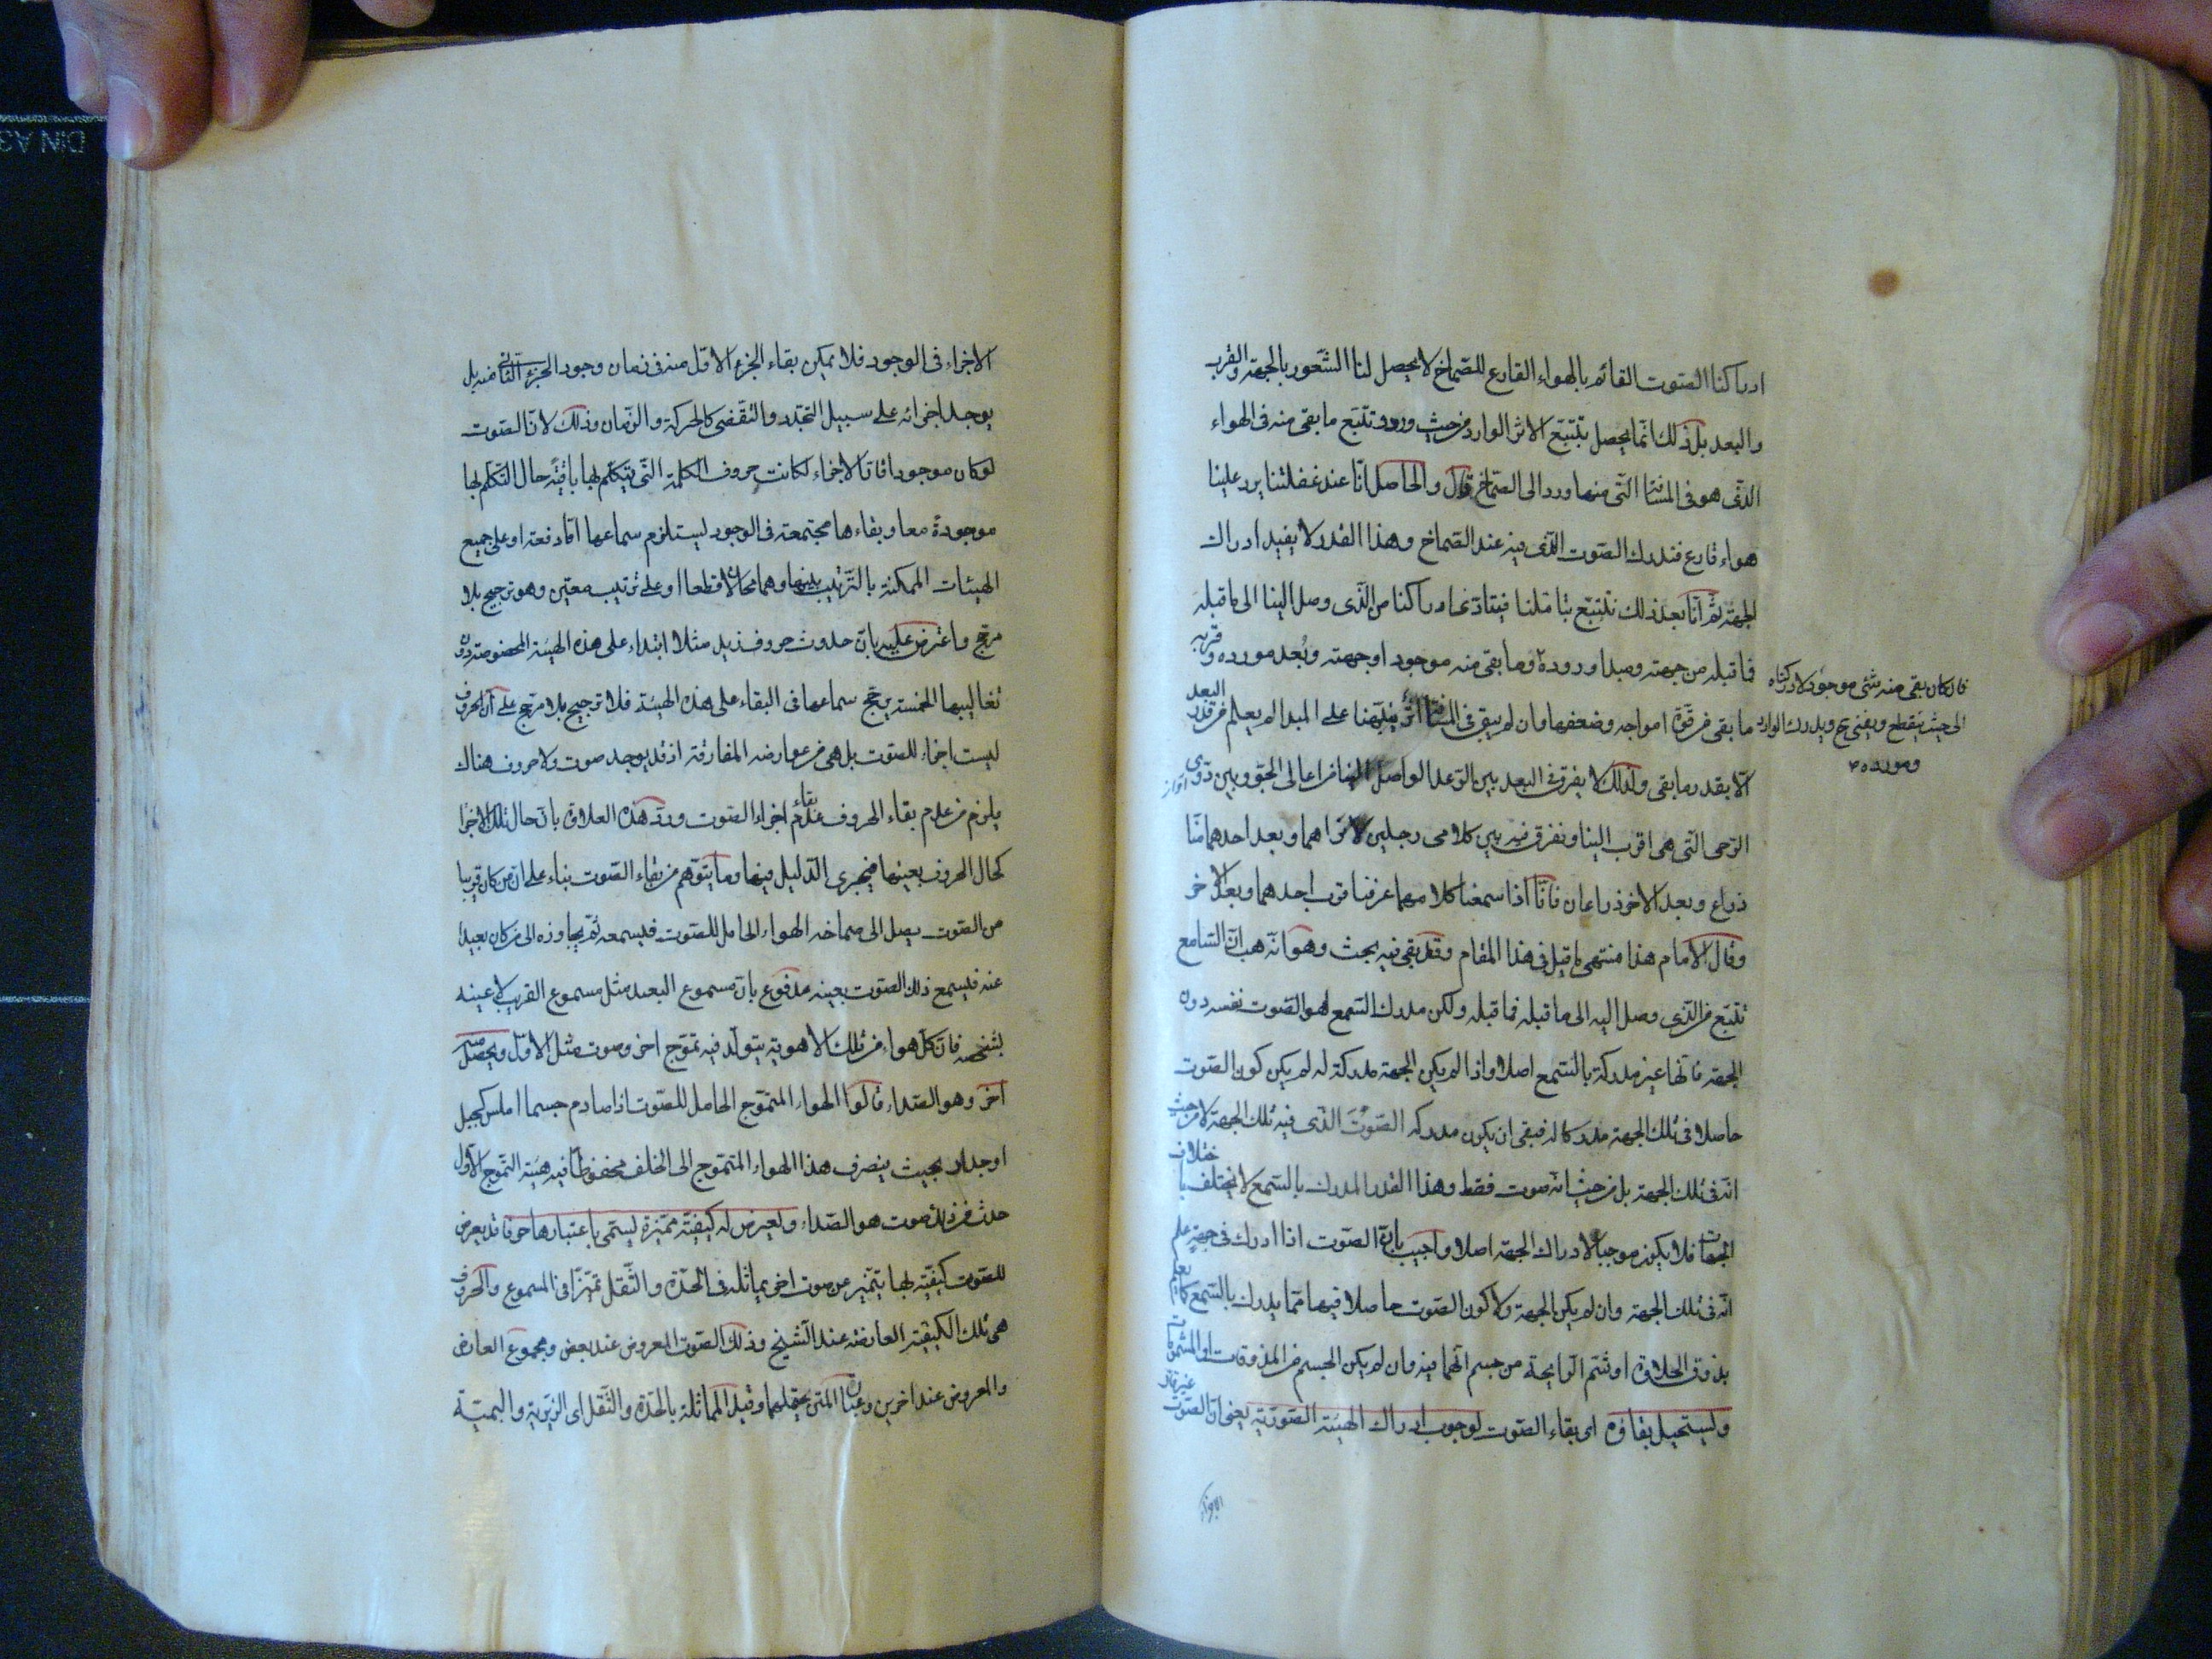 ادراكنا الصّوت القائم بالهواء القارع للصّماخ لا يحصل لنا الشّعور بالجهة والقرب
والبعد بل ذلك انّما يحصل بتتبّع الاثر الوارد من حيث ورد وتتبّع ما بقى منه فى الهواء
الذّى هو فى المسافة الّتى منها ورد الى الصّماخ قال والحاصل انّا عند غفلتنا يرد علينا
هواء قارع فندرك الصّوت الّذى فيه عند الصّماخ وهذا القدر لا يفيد ادراك
الجهة ثمّ انّا بعد ذلك نتتبّع بتأمّلنا فيتادّى ادراكنا من الّذى وصل الينا الى ما قبله
فما قبله من جهته ومبدا وروده وما بقى منه موجود او جهته وبُعد مورده وقربه
فان كان بقى منه شئ موجود لادركناه
الى حيث ينقطع ويفنى ويدرك الوارد
ومورده
ما بقى من قوّة امواجه وضعفها وان لم يبق فى المسافة اثر ينبّهنا على المبدا لم يعلم من قدر البعد
الّا بقدر ما بقى ولذلك لا يفرق فى البعد بين الرّعد الواصل الينا من اعالى الجوّ وبين دوىّ
الرّحى الّتى هى اقرب الينا ونفرق فيه بين كلامى رجلين لا نراهما وبعد احدهما منّا
ذراع وبعد الاخر ذراعان فانّا اذا سمعنا كلامهما عرفنا قرب احدهما وبعد الاخر
وقال الامام هذا منتهى ما قيل فى هذا المقام وقد بقى فيه بحث وهو انّه هب انّ السّامع
تتبّع من الّذى وصل اليه الى ما قبله فما قبله ولكن مدرك السّمع لهو الصّوت نفسه دون
الجهة فانّها غير مدركة بالسّمع اصلا واذا لم يكن الجهة مدركة له لم يكن كون الصّوت
حاصلا فى تلك الجهة مدركا له فبقى ان يكون مدركه الصّوت الّذى فيه تلك الجهة لا من حيث
انّه فى تلك الجهة بل من حيث انّه صوت فقط وهذا القدر المدرك بالسّمع لا يختلف باختلاف
الجهات فلا يكون موجبا لادراك الجهة اصلا واجيب بانّ الصّوت اذا ادرك فى جهة علم
انّه فى تلك الجهة وان لم يكن الجهة ولا كون الصّوت حاصلا فيها ممّا يدرك بالسّمع كما يعلم
بذوق الحلاوة او شمّ الرّايحة من جسم انّهما فيه وان لم يكن الجسم من المذوقات او المشمومات
ويستحيل بقاؤه اى بقاء الصّوت لوجوب ادراك الهيئة الصّوريّة يعنى انّ الصّوت غير قارّ
الاجزاء
الاجزاء فى الوجود فلا يمكن بقاء الجزء الاوّل منه فى زمان وجود الجزء الثّانى منه بل
يوجد اجزائه على سبيل التّجدّد والتّقضّى كالحركة والزّمان وذلك لانّ الصّوت
لو كان موجودا قارّ الاجزاء لكانت حروف الكلمة الّتى يتكلّم بها باقية حال التّكلّم بها
موجودة معا وبقاءها مجتمعة فى الوجود ليستلزم سماعها امّا دفعة او على جميع
الهيئات الممكنة بالتّرتيب بينها وهما محالان قطعا او على ترتيب معيّن وهو ترجيح بلا
مرجّح واعترض عليه بانّ حدوث حروف زيد مثلا ابتداء على هذه الهيئة المخصوصة دون
تقاليبها الخمسة يرجّح سماعها فى البقاء على هذه الهيئة فلا ترجيح بلا مرجّح على انّ الحروف
ليست اجزاء للصّوت بل هى من عوارضه المفارقة اذ قد يوجد صوت ولا حروف هناك
يلزم من عدم بقاء الحروف عدم بقاء اجزاء الصّوت وردّ هذه العلاوة بانّ حال تلك الاجزا
كحال الحروف بعينها فيجرى الدّليل فيها وما يتوّهم من بقاء الصّوت بناء على انّ من كان قريبا
من الصّوت يصل الى صماخه الهواء الحامل للصّوت فيسمعه ثمّ يجاوزه الى من كان بعيدا
عنه فيسمع ذلك الصّوت بعينه مدفوع بانّ مسموع البعيد مثل مسموع القريب لا عينه
بشخصه فانّ كلّ هواء من تلك الاهوية يتولّد فيه تموّج اخر وصوت مثل الاوّل ويحصل منه
اخر وهو الصّداء قالوا الهواء المتموّج الحامل للصّوت اذا صادم جسما املس كجبل
او جدار بحيث ينصرف هذا الهواء المتموّج الى الخلف محفوظا فيه هيئة التّموّج الاوّل
حدث من ذلك صوت هو الصّداء ويعرض له كيفيّة مميّزة ليسمّى باعتبارها حرفا قد يعرض
للصّوت كيفيّة بها يتميّز عن صوت اخر يماثله فى الحدّة والثّقل تميّزا فى المسموع والحروف
هى تلك الكيفيّة العارضة عند الشّيخ وذلك الصّوت المعروض عند بعض ومجموع العارض
والمعروض عند اخرين وعبارة المتن يحتملهما وقيد المماثلة بالحدّة والثّقل اى الزّيريّة والبميّة